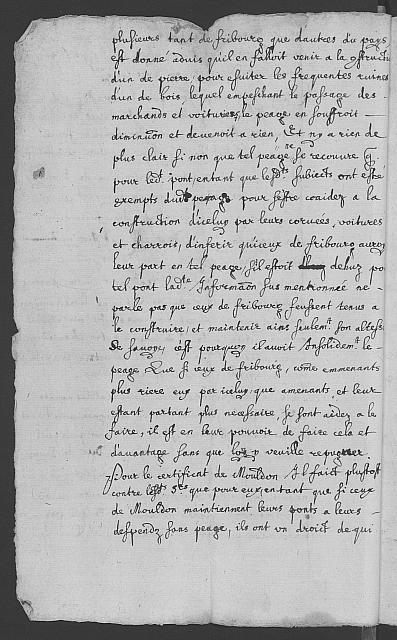 plusieurs tant de fribourg que dautres du pays
est donné aduis quil en falloit venir a la construction
dun de pierre, pour esuiter les frequentes ruines
dun de bois, lequel empeschant le passage des
marchands et voitures, le peage en souffroit
diminuon et deuenoit a rien, Et ny a rien de
plus clair si non que tel peage ne se recouure q̃
pour led.t pont, entant que lesd.ts subiects ont esté
exempts dud.t peage pour sestre coaidez a la
construction diceluy par leurs coruées, voitures
et charrois, dinferir quiceux de fribourg auroyt
leur part en tel peage, sil estoit debuz po
tel pont lad.te Informaon sus mentionneé ne
parle pas que ceux de fribourg feussent tenus a
le construire, et maintenir ains seulem.t son altesse
de sauoye, cest pourquoy il auoit Insolidem.t le
peage Que si ceux de fribourg, com̃e emmenants
plus riere eux par iceluy, que amenants, et leur
estant partant plus necessaire, se sont aidez a le
faire, il est en leur pouuoir de faire cela et
dauantage sans que lon y veuille repugner.
Pour le certificat de Mouldon Il faict plustost
contre lesd.ts S.rs que pour eux, entant que si ceux
de Mouldon maintiennent leurs ponts a leurs
despendz sans peage, ils ont vn droict de qui